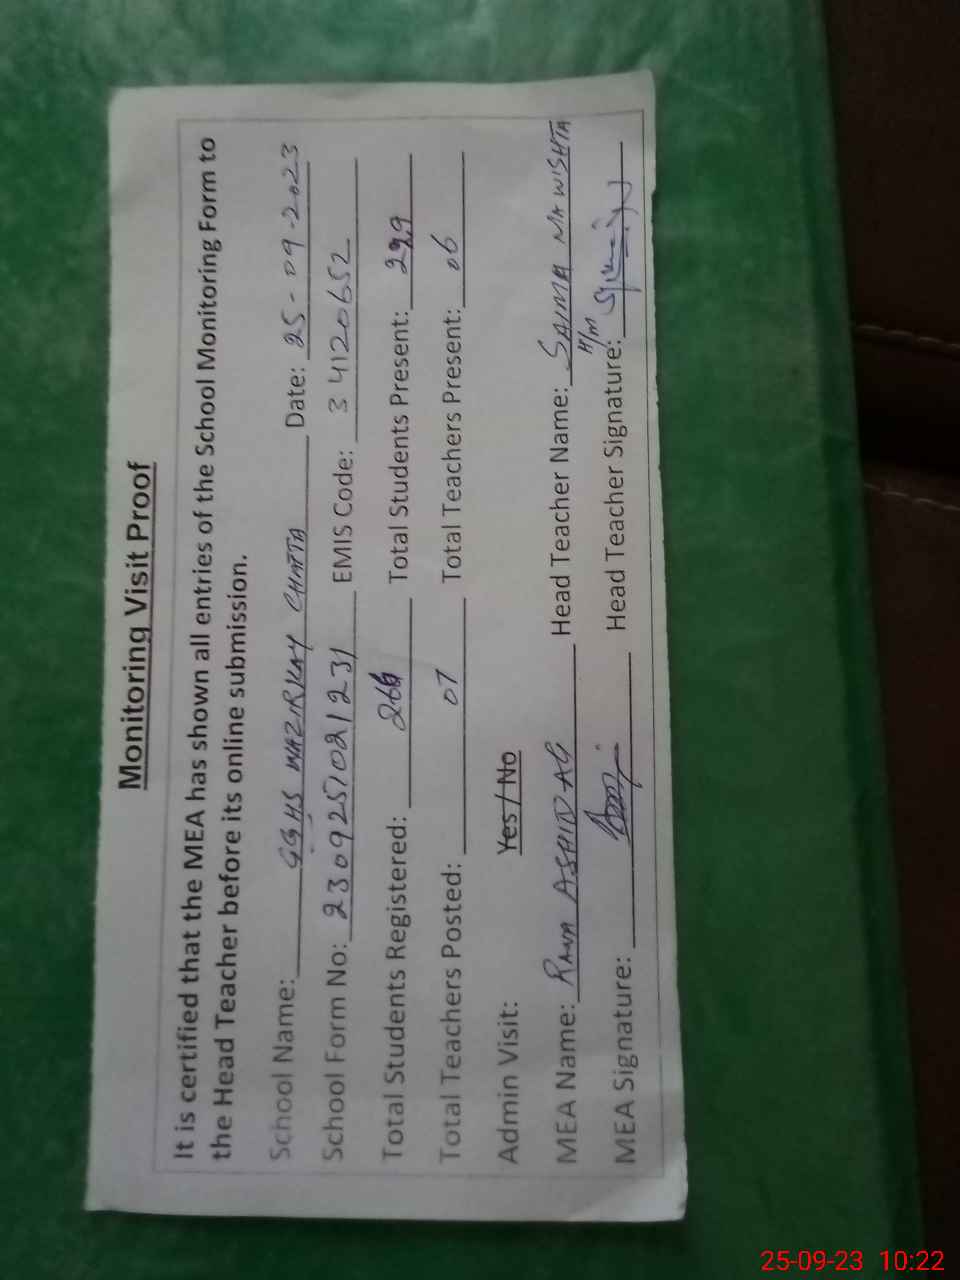 Monitoring Visit Proof
It is certified that the MEA has shown all entries of the School Monitoring Form to
the Head Teacher before its online submission.
School Name: GGHS WAZIRKAY CHATTA Date: 25-09-2023
School Form No: 2309251021231 EMIS Code: 34120652
Total Students Registered: 266 Total Students Present: 229
Total Teachers Posted: 07 Total Teachers Present: 06
Admin Visit: Yes / No
MEA Name: RANA ASHID ALI Head Teacher Name: SAIMA MAWISHTA
H/m
MEA Signature: Head Teacher Signature:
25-09-23 10:22